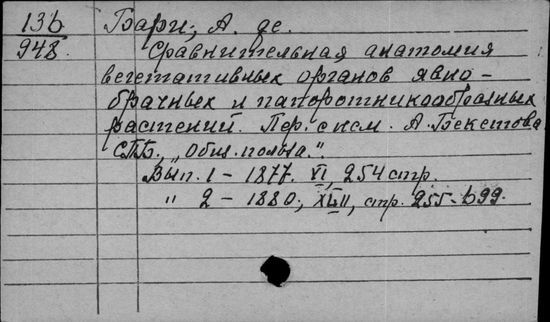 13б Бари, А. де.
948. Сравнительная анатомия
вегетативных органов явно-
брачных и папоротникообразных
растений. Пер. с нем. А. Бекетова
СПБ., „Общ. польза".
Вып. 1 - 1877. VI, 254 стр.
" 2 - 1880, XVIII, стр. 255-699.